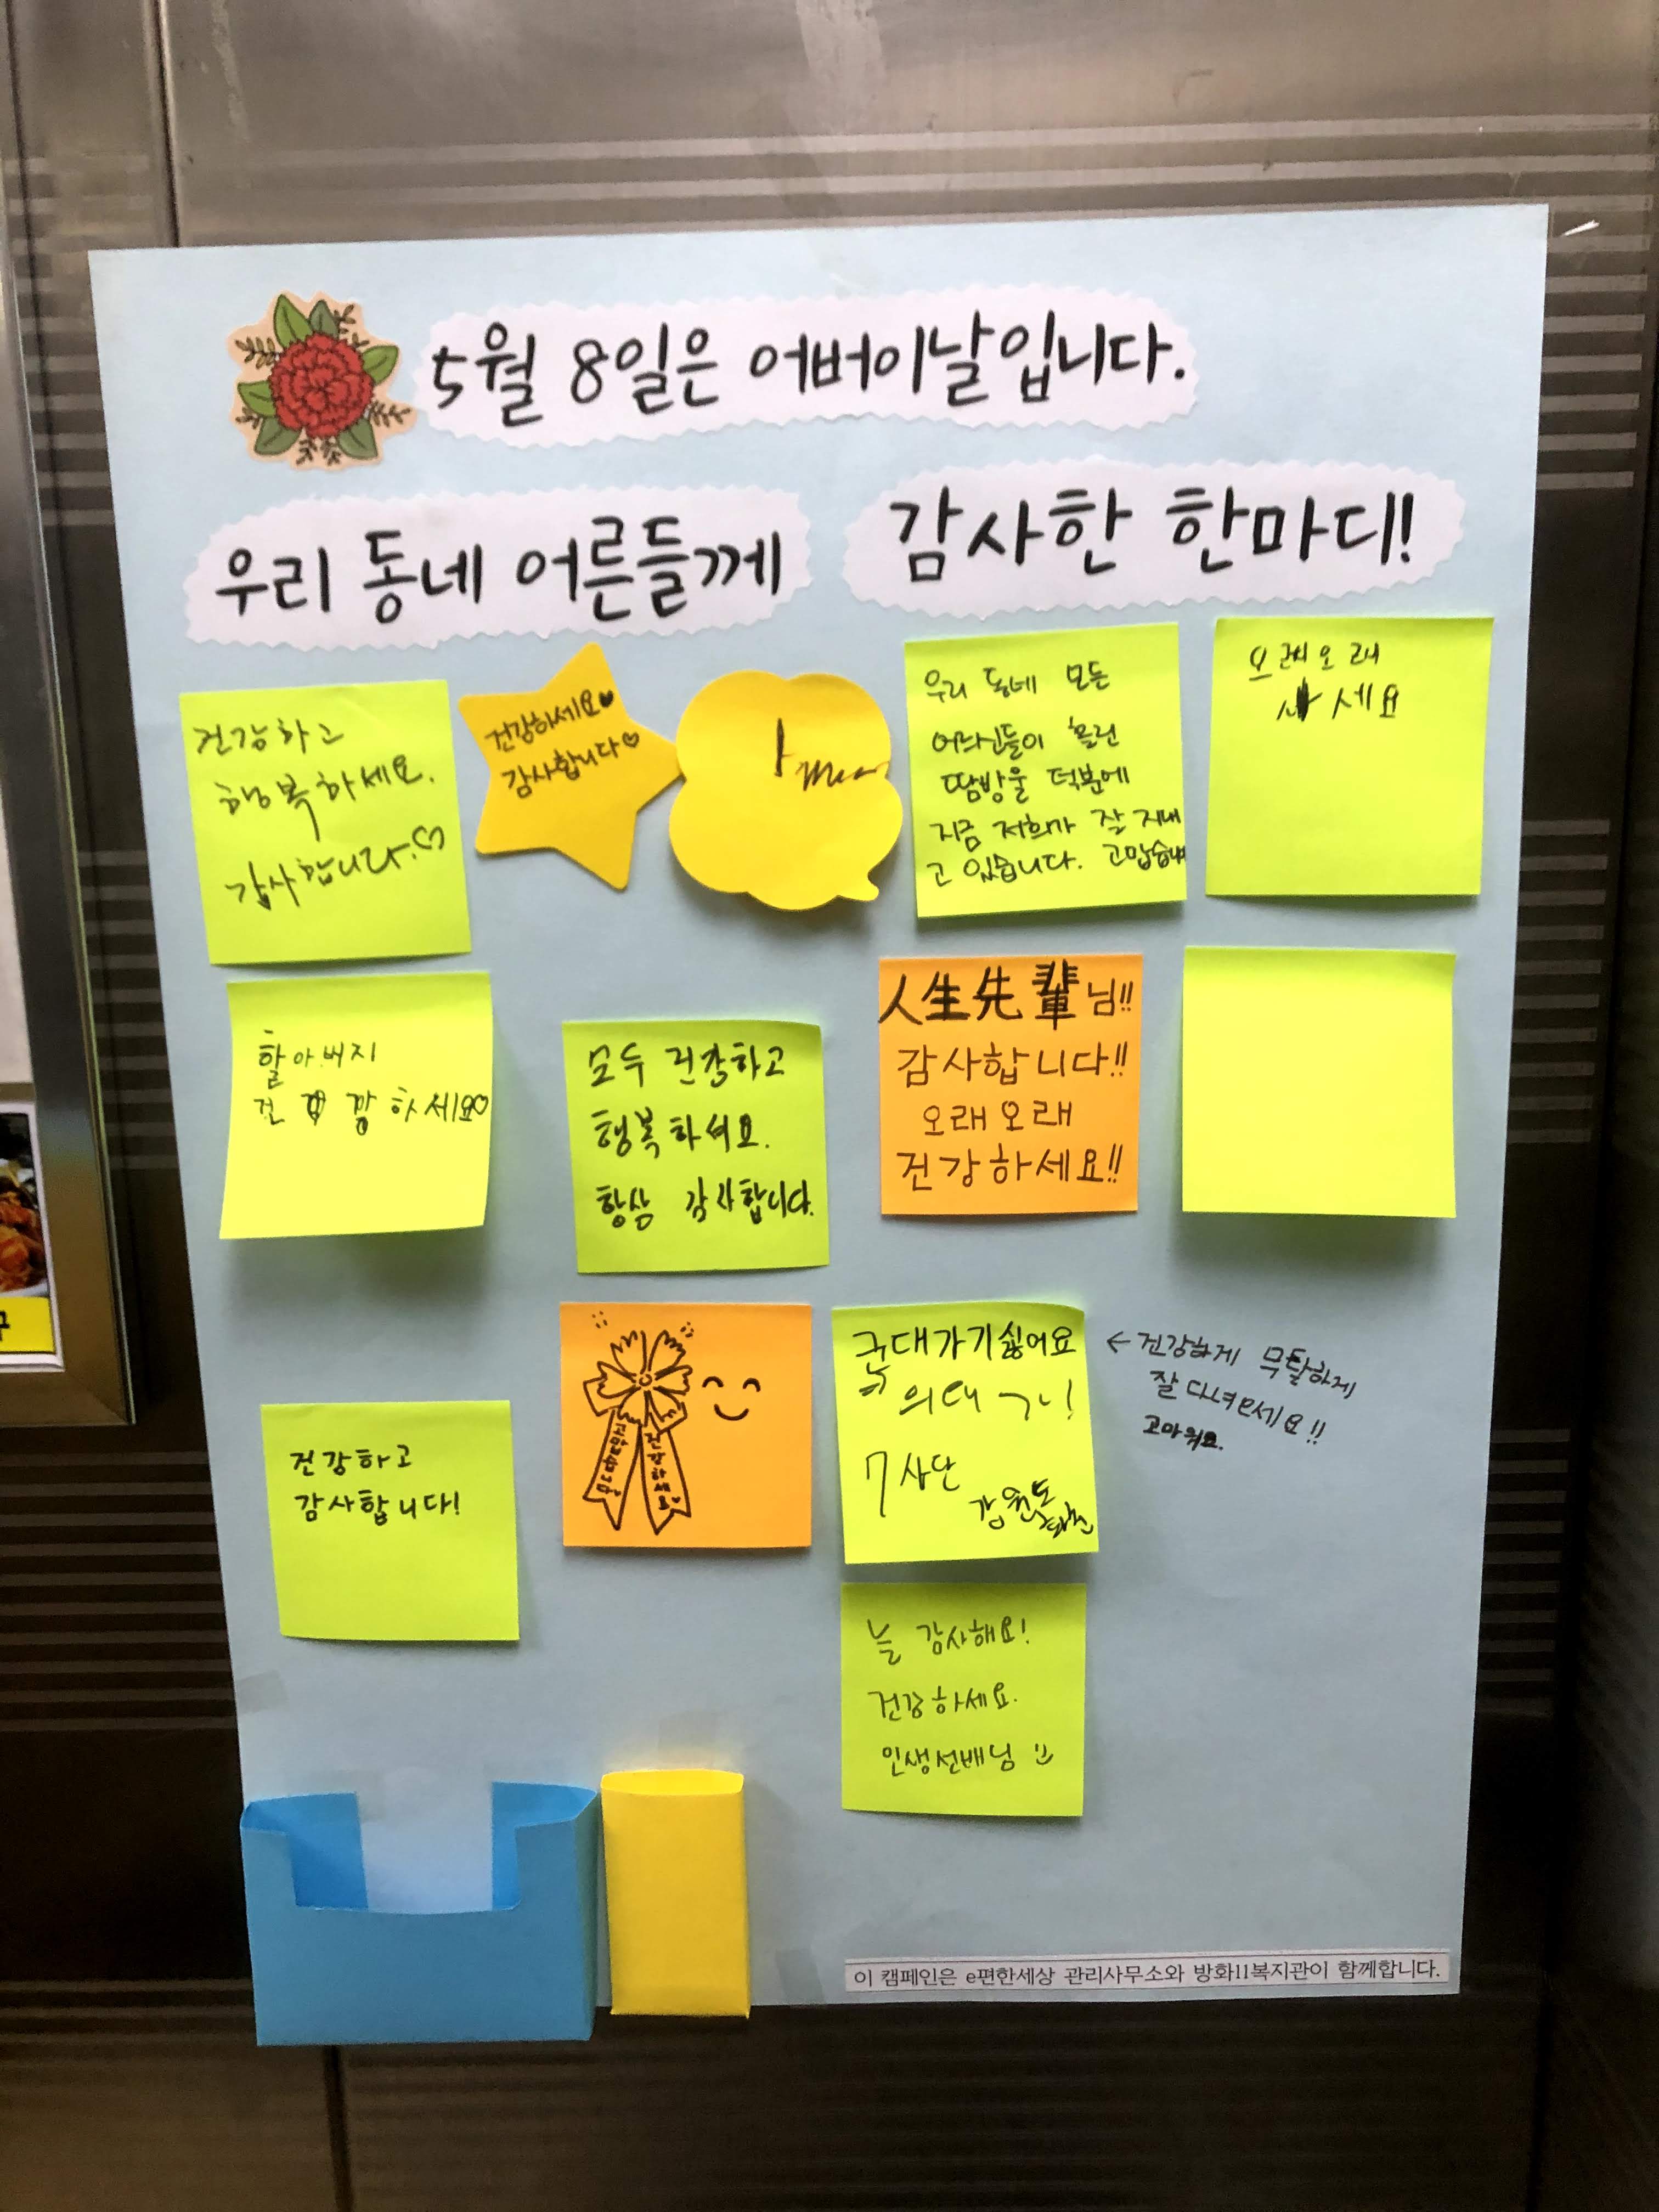 5월 8일은 어버이날입니다.
우리 동네 어른들께 감사한 한마디!
건강하고
행복하세요.
감사합니다.♡
건강하세요♥
감사합니다♡
우리 동네 모든
어르신들이 흘린
땀방울 덕분에
지금 저희가 잘 지내
고 있습니다. 고맙습니다
오래오래
사세요
할아버지
건 깡 하세요♡
모두 건강하고
행복하셔요.
항상 감사합니다.
人生先輩님!!
감사합니다!!
오래오래
건강하세요!!
건강하고
감사합니다!
건강하세요♥
군대가기싫어요
7사단
강원도
← 건강하게 무탈하게
잘 다녀오세요!!
고마워요.
늘 감사해요!
건강하세요.
인생선배님
이 캠페인은 e편한세상 관리사무소와 방화11복지관이 함께합니다.